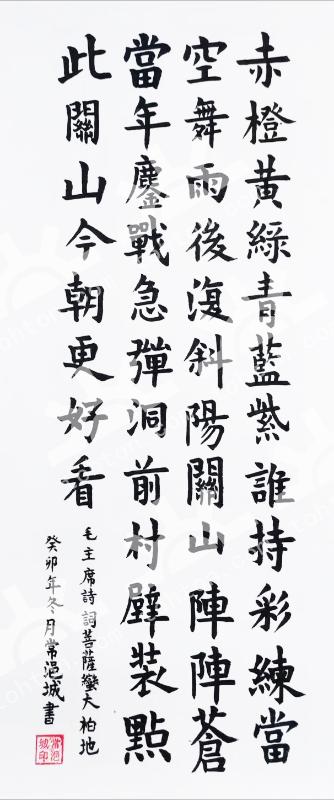 赤橙黃綠青藍紫誰持彩練當
空舞雨後復斜陽關山陣陣蒼
當年鏖戰急彈洞前村壁裝點
此關山今朝更好看
毛主席詩詞菩薩蠻大柏地
癸卯年冬月常浥城書